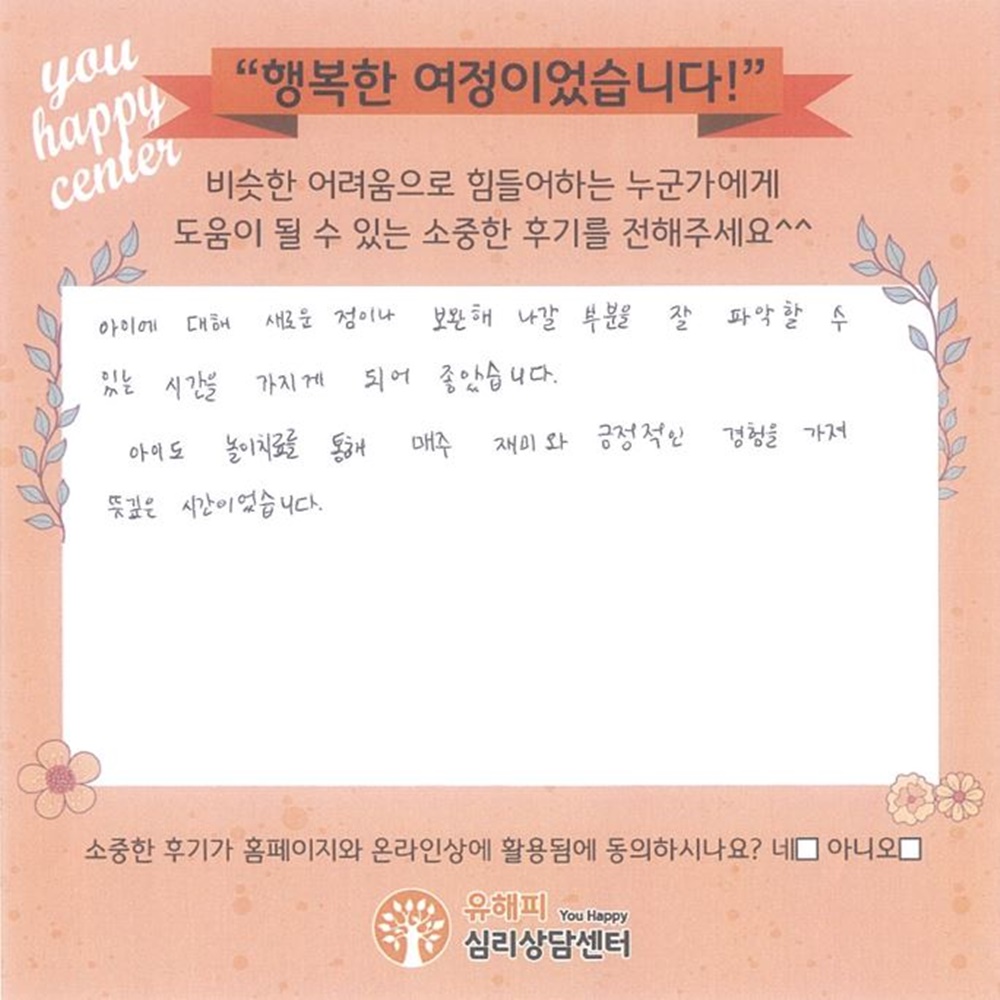 you
happy
center
“행복한 여정이었습니다!”
비슷한 어려움으로 힘들어하는 누군가에게
도움이 될 수 있는 소중한 후기를 전해주세요^^
아이에 대해 새로운 점이나 보완해 나갈 부분을 잘 파악할 수
있는 시간을 가지게 되어 좋았습니다.
아이도 놀이치료를 통해 매주 재미와 긍정적인 경험을 가져
뜻깊은 시간이었습니다.
소중한 후기가 홈페이지와 온라인상에 활용됨에 동의하시나요? 네□ 아니오□
유해피 You Happy
심리상담센터